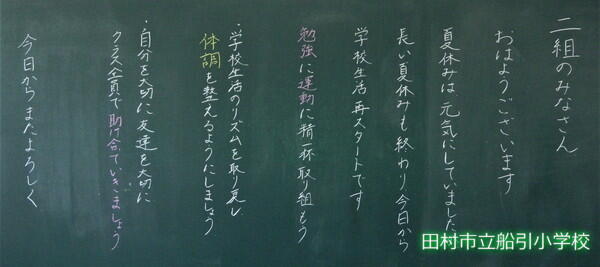 二組のみなさん
おはようございます
夏休みは元気にしていました
長い夏休みも終わり今日から
学校生活再スタートです
勉強に運動に精一杯取り組もう
・学校生活のリズムを取り戻し
体調を整えるようにしましょう
・自分を大切に友達を大切に
クラス全員で助け合っていきましょう
今日からまたよろしく
田村市立船引小学校